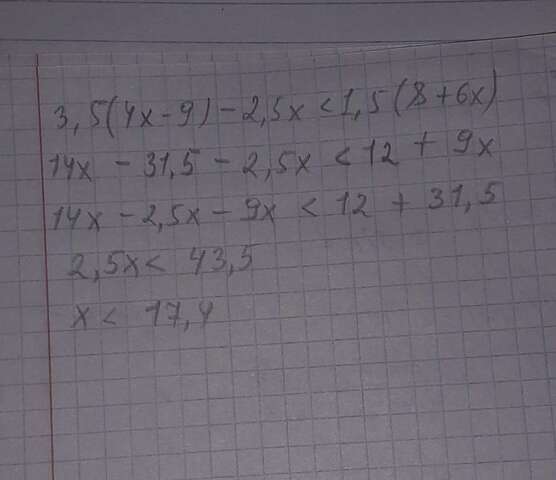 3,5(4x-9)-2,5x<1,5(8+6x)
14x - 31,5 - 2,5x < 12 + 9x
14x - 2,5x - 9x < 12 + 31,5
2,5x < 43,5
x < 17,4